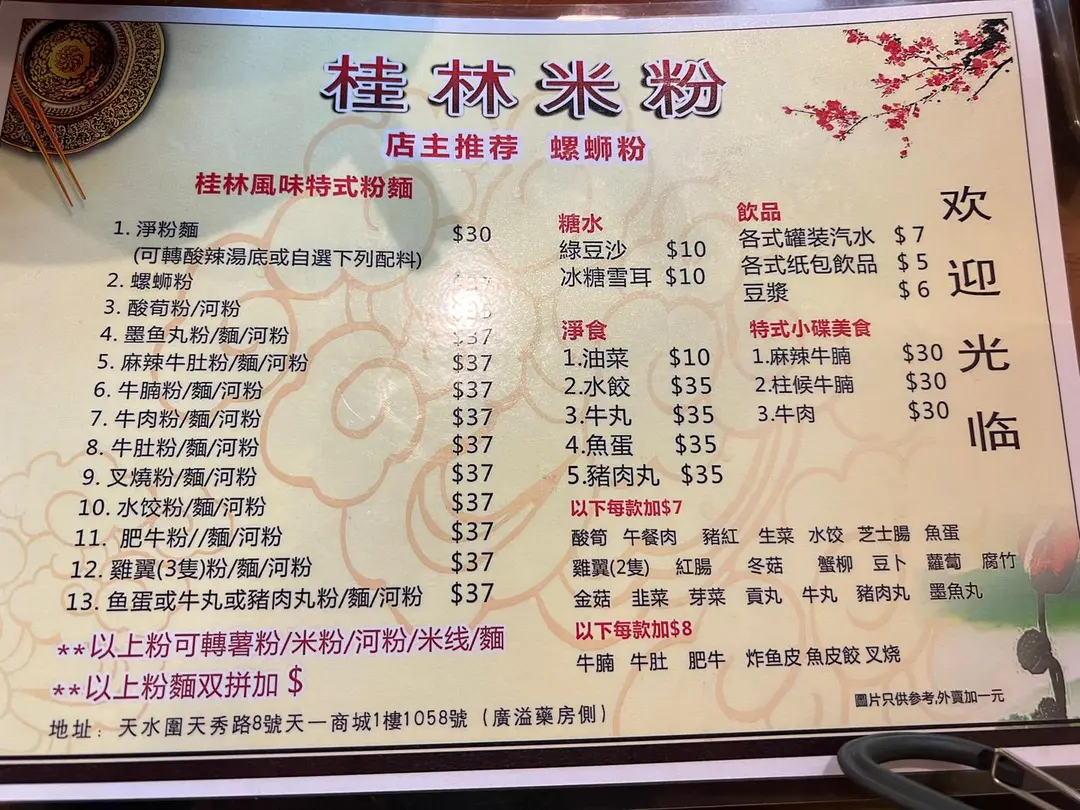 桂林米粉
店主推荐 螺蛳粉
桂林風味特式粉麵
1. 淨粉麵 $30
(可轉酸辣湯底或自選下列配料)
2. 螺蛳粉
3. 酸荀粉/河粉
4. 墨鱼丸粉/麵/河粉 $37
5. 麻辣牛肚粉/麵/河粉 $37
6. 牛腩粉/麵/河粉 $37
7. 牛肉粉/麵/河粉 $37
8. 牛肚粉/麵/河粉 $37
9. 叉燒粉/麵/河粉 $37
10. 水饺粉/麵/河粉 $37
11. 肥牛粉//麵/河粉 $37
12. 雞翼(3隻)粉/麵/河粉 $37
13. 鱼蛋或牛丸或豬肉丸粉/麵/河粉 $37
**以上粉可轉薯粉/米粉/河粉/米线/麵
**以上粉麵双拼加 $
地址: 天水圍天秀路8號天一商城1樓1058號 (廣溢藥房側)
糖水
綠豆沙 $10
冰糖雪耳 $10
淨食
1.油菜 $10
2.水餃 $35
3.牛丸 $35
4.魚蛋 $35
5.豬肉丸 $35
飲品
各式罐装汽水 $7
各式纸包飲品 $5
豆漿 $6
特式小碟美食
1.麻辣牛腩 $30
2.柱候牛腩 $30
3.牛肉 $30
以下每款加$7
酸筍 午餐肉 豬紅 生菜 水饺 芝士腸 魚蛋
雞翼(2隻) 紅腸 冬菇 蟹柳 豆卜 蘿蔔 腐竹
金菇 韭菜 芽菜 貢丸 牛丸 豬肉丸 墨魚丸
以下每款加$8
牛腩 牛肚 肥牛 炸鱼皮 魚皮餃 叉烧
圖片只供参考,外賣加一元
欢迎光临